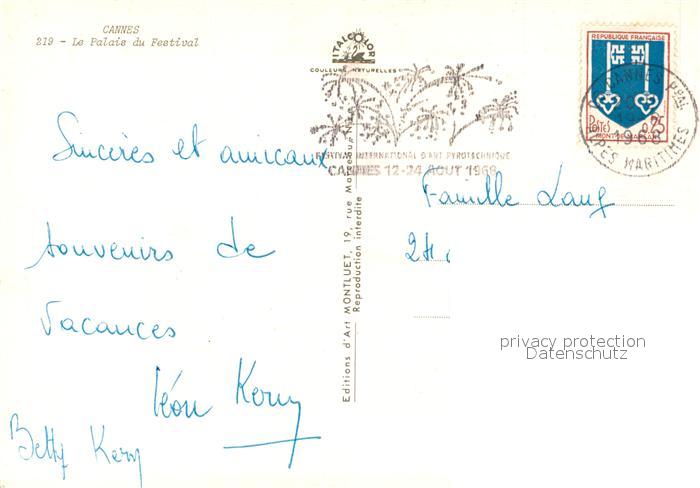 CANNES
219 - Le Palais du Festival
ITALCOLOR
COULEURS NATURELLES
FESTIVAL INTERNATIONAL D'ART PYROTECHNIQUE
CANNES 12-24 AOUT 1968
REPUBLIQUE FRANÇAISE
POSTES 0,25
MONT-DE-MARSAN
CANNES PAL
1968
ALPES MARITIMES
Sincères et amicaux
souvenirs de
vacances
Léon Kerny
Betty Kerny
Editions d'Art MONTLUET, 19, rue
Reproduction interdite
Famille Lang
24,
privacy protection
Datenschutz